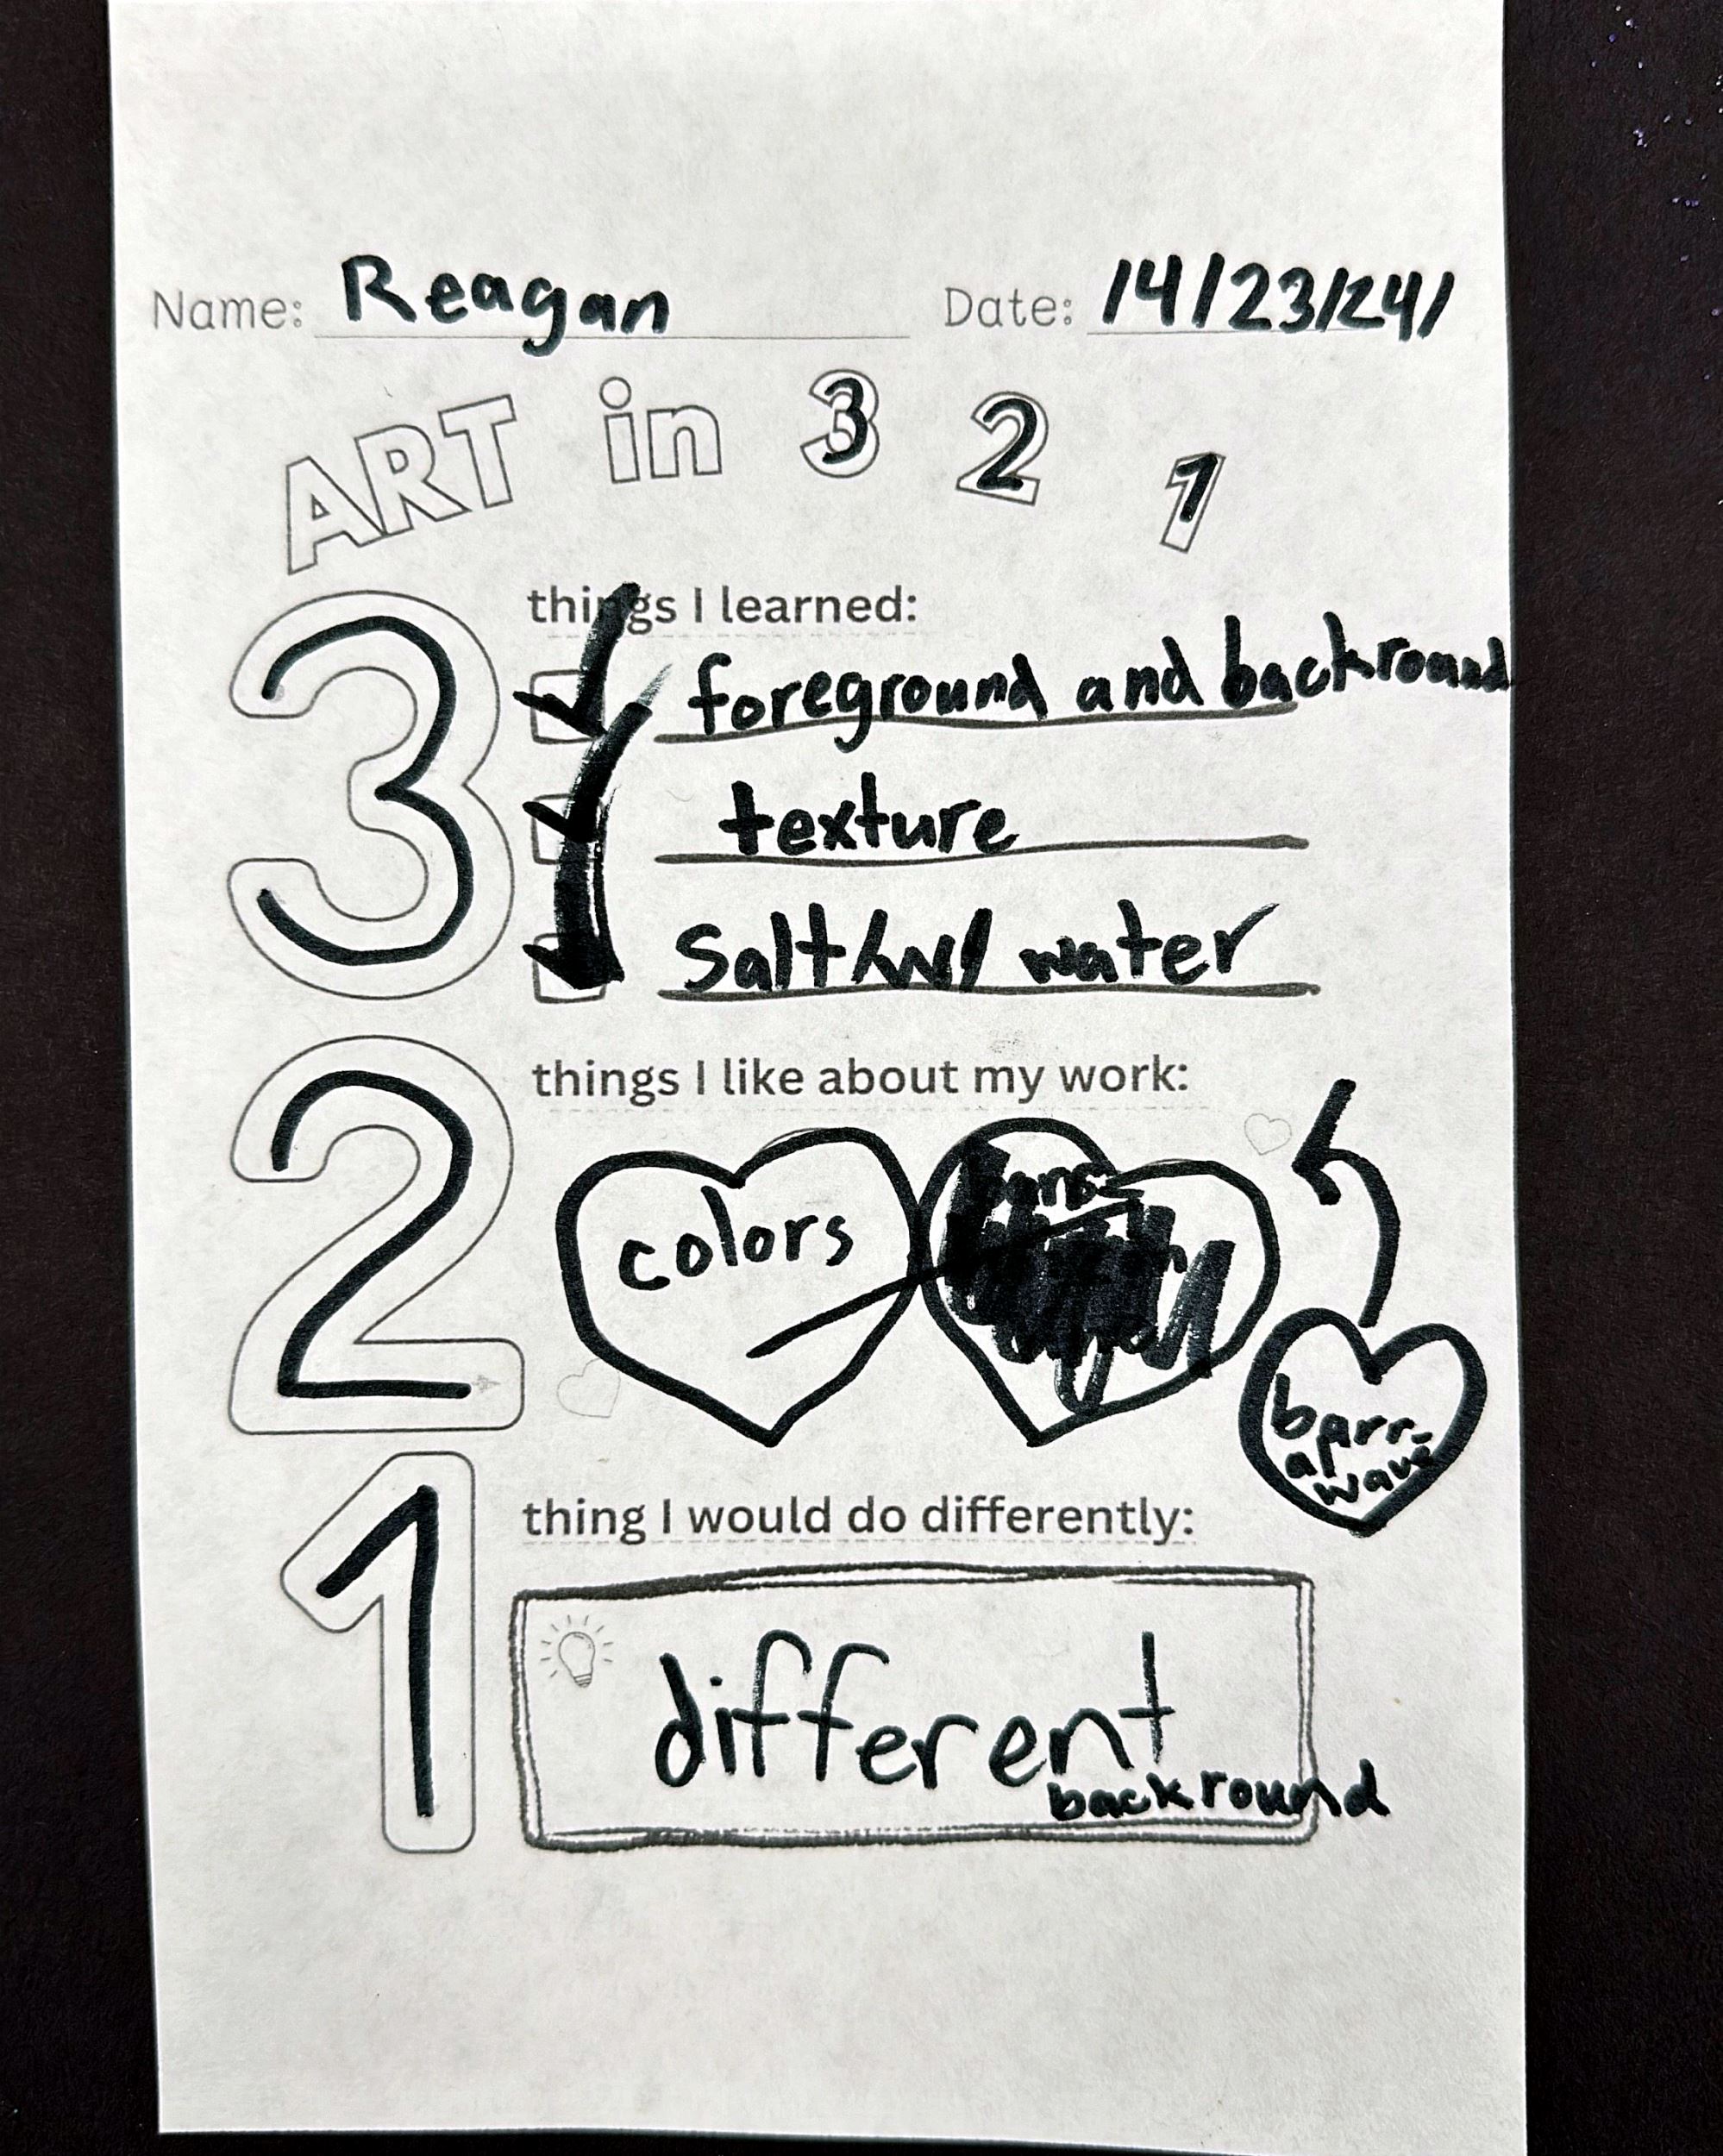 Name: Reagan Date: 14/23/24/
ART in 3 2 1
3 things I learned:
foreground and backround
texture
Salt/w/ water
2 things I like about my work:
colors
barr-
al
wave
1 thing I would do differently:
different
backround